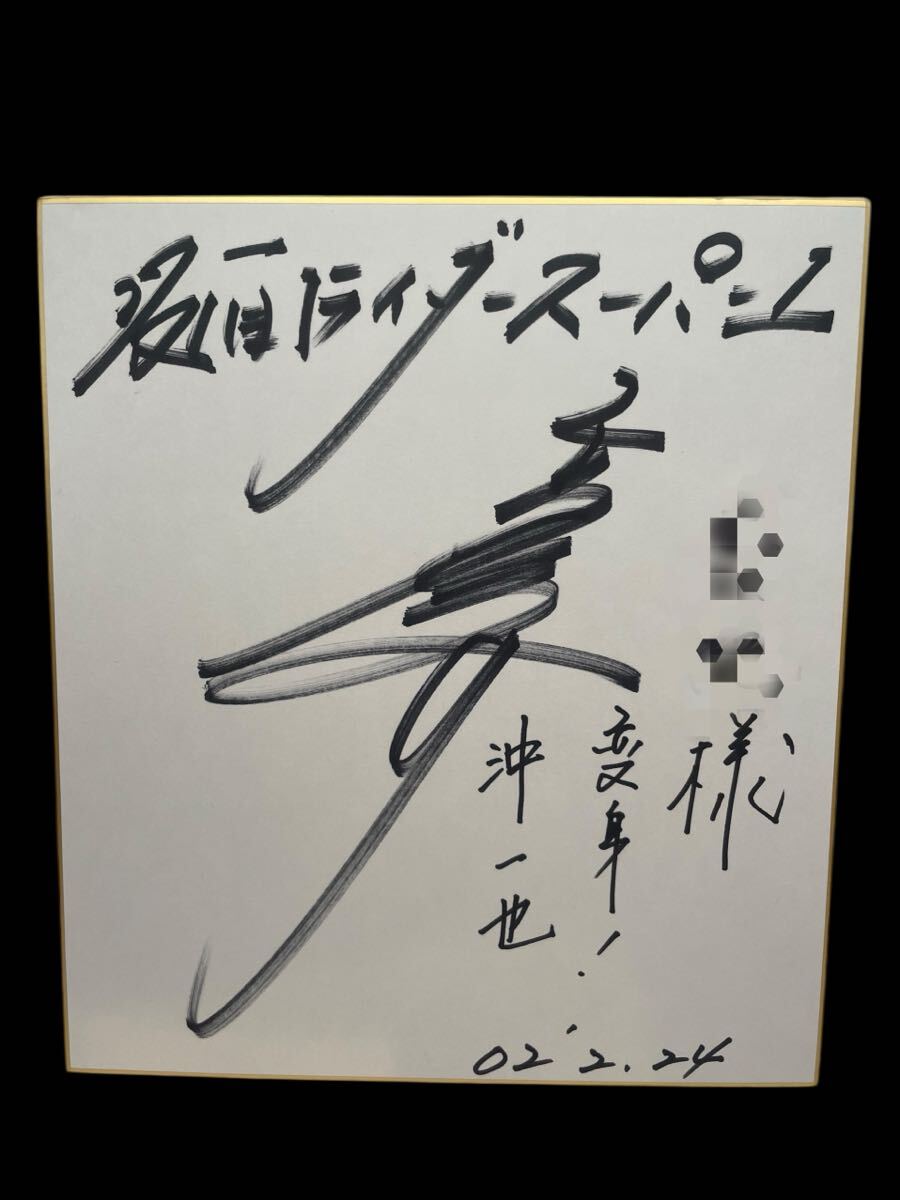 仮面ライダースーパー1
様
変身!
沖一也
02'2.24